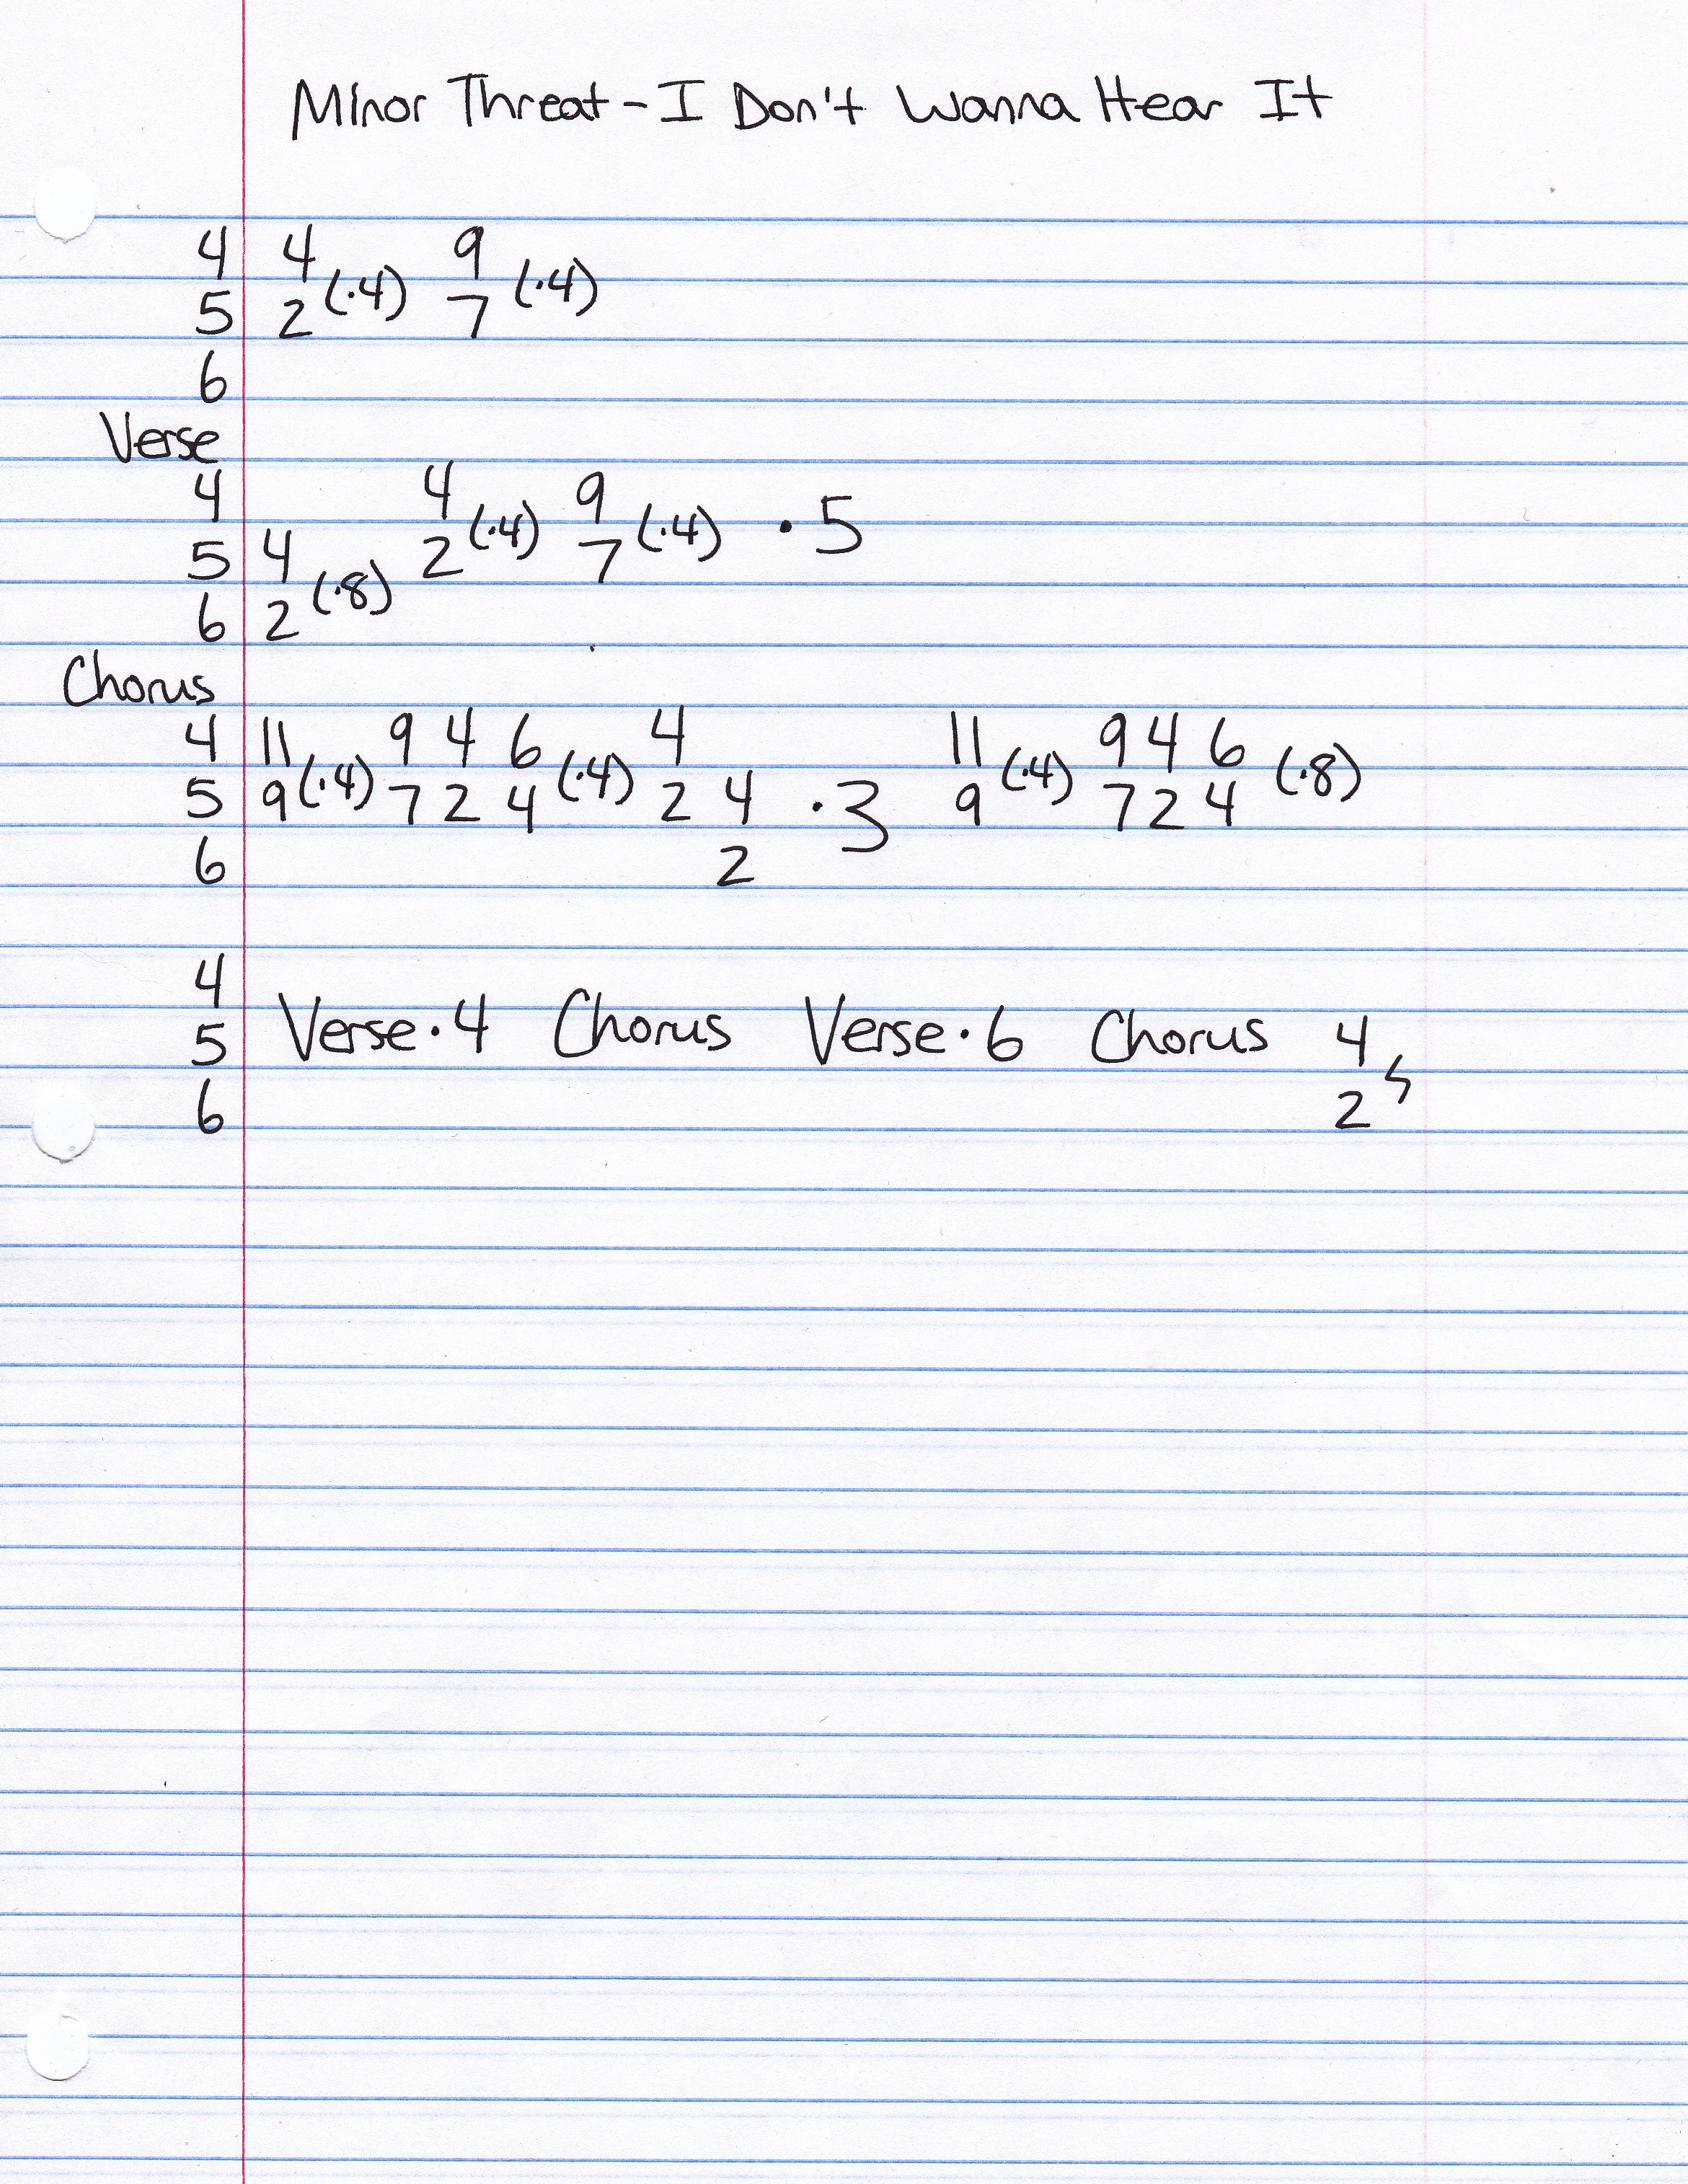 Minor Threat - I Don't Wanna Hear It
4 4 9
5 2 (·4) 7 (·4)
6
Verse
4 4 9
5 4 2 (·4) 7 (·4) · 5
6 2 (·8)
Chorus
4 11 9 4 6 4 11 9 4 6
5 9 (·4) 7 2 4 (·4) 2 4 ·3 9 (·4) 7 2 4 (·8)
6 2
4
5 Verse·4 Chorus Verse·6 Chorus 4
6 2